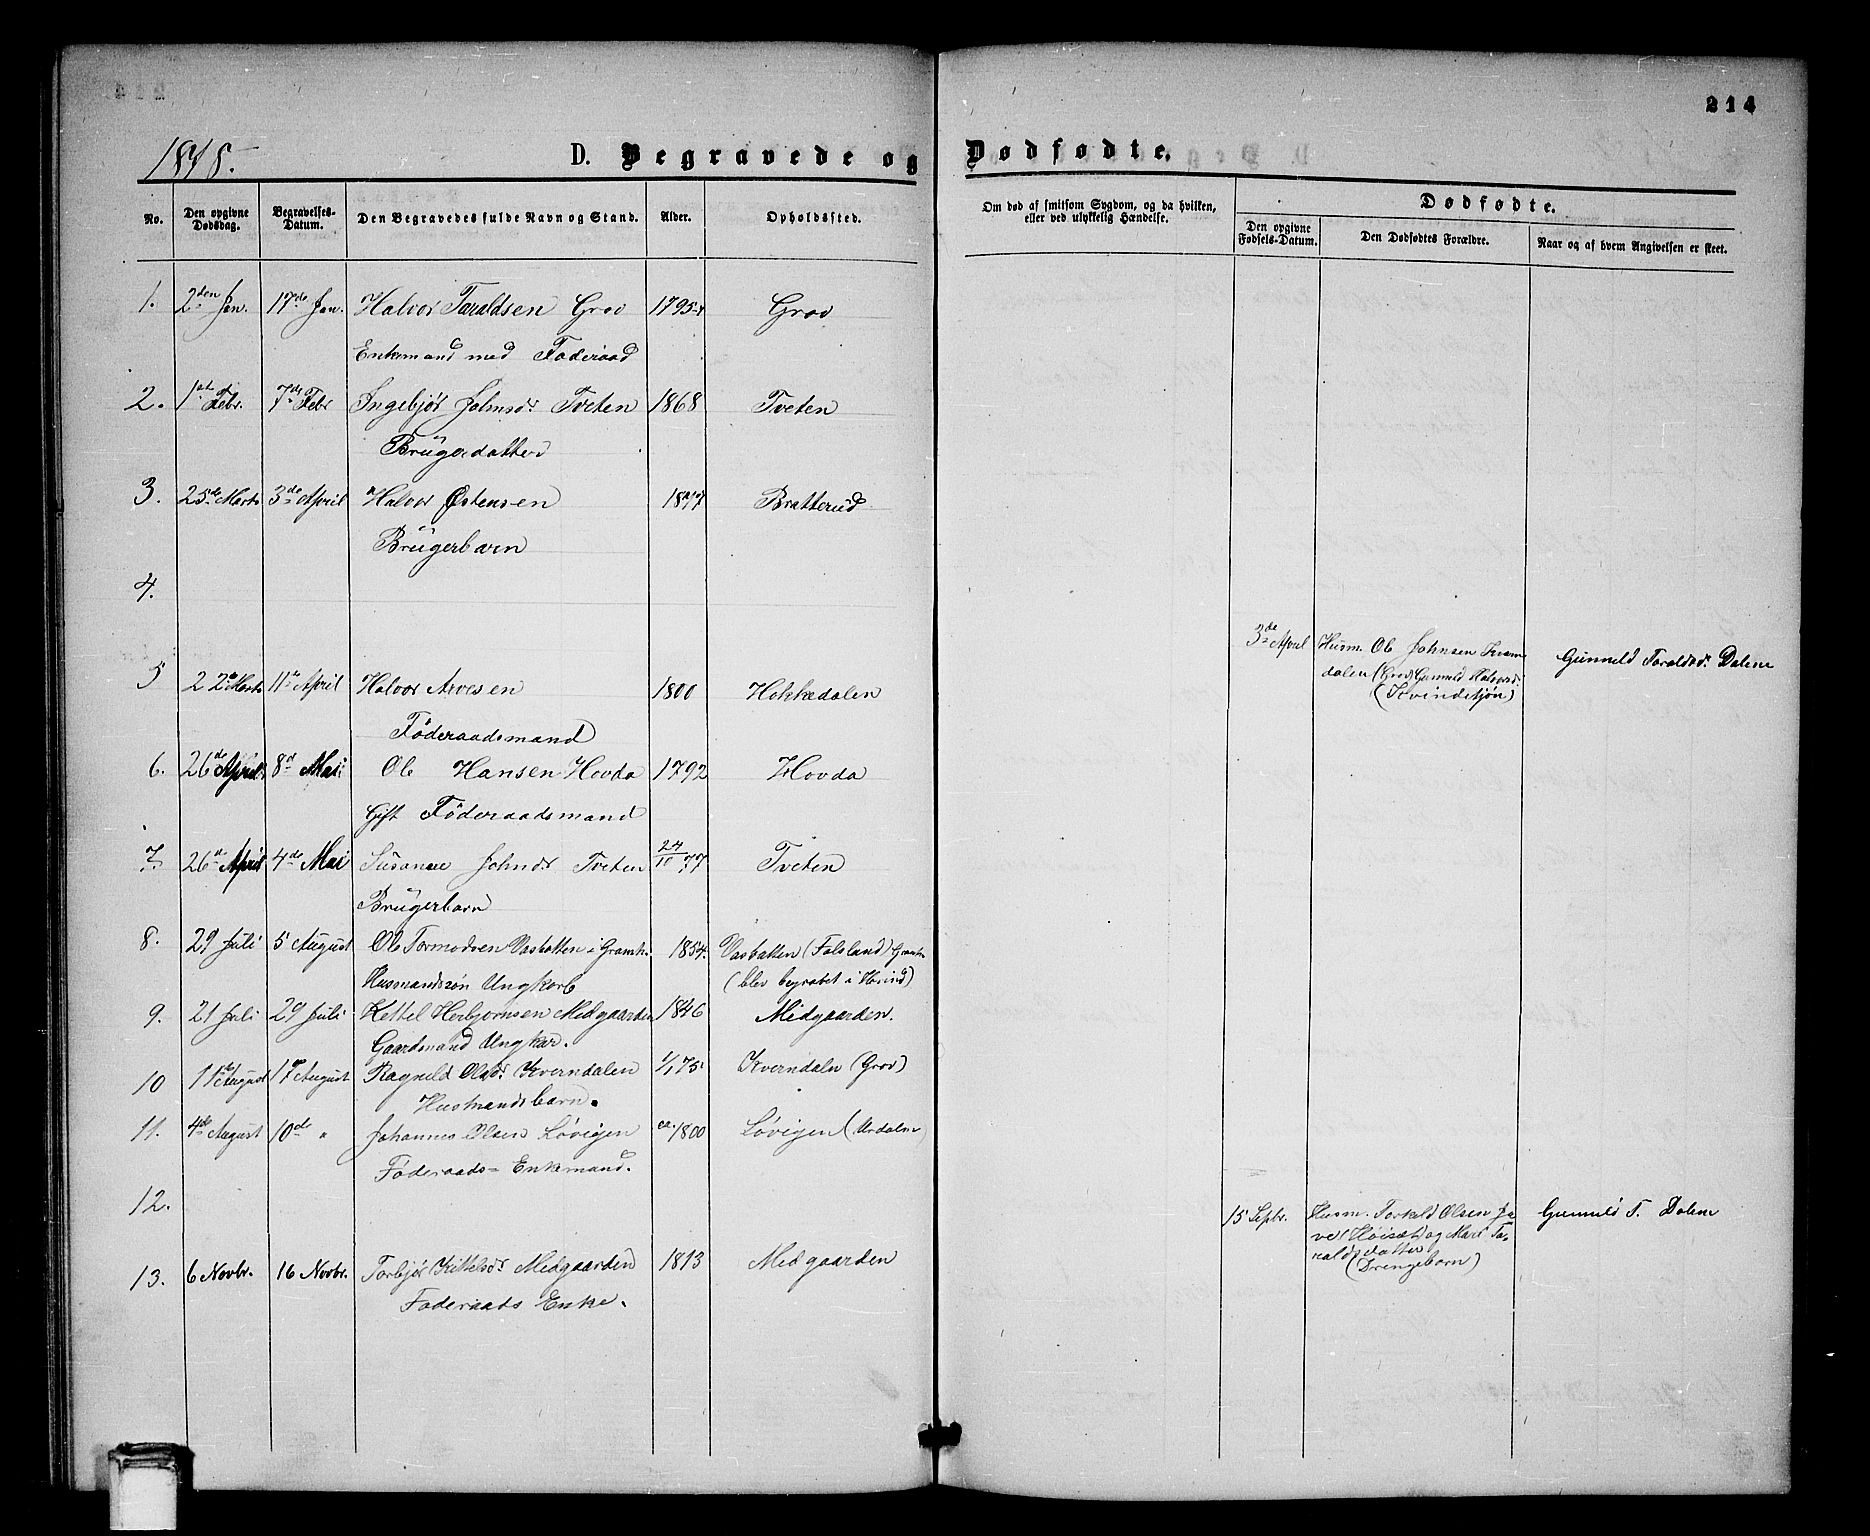 214
1878.
D. Begravede og Dødfødte.
No.
Den opgivne Dødsdag.
Begravelses-Datum.
Den Begravedes fulde Navn og Stand.
Alder.
Opholdssted.
Om død af smitsom Sygdom, og da hvilken, eller ved ulykkelig Hændelse.
Dødfødte.
Den opgivne Fødsels-Datum.
Den Dødfødtes Forældre.
Naar og af hvem Angivelsen er skeet.
1. 2den Jan. 17de Jan. Halvor Taraldsen Grov 1795 Grov
Enkemand med Føderaad
2. 1st Febr. 7de Febr Ingebjør Johnsdr Tveten 1868 Tveten
Brügerdatter
3. 25de Marts 3de April Halvor Østensen 1877 Bratterud
Brügerbarn
4.
3de April Husm. Ole Johnsen Kvern
dalen (Grov) Gunnild Halvorsd.
(Kvindekjøn)
Gunnild Taraldsdr Dalene
5 22de Marts 11te April Halvor Arvesen 1800 Hokkedalen
Føderaadsmand
6. 26de April 8de Mai Ole Hansen Hovda 1792 Hovda
Gift Føderaadsmand
7. 26de April 4de Mai Susanne Johnsdr Tveten 24/10 77 Tveten
Brügerbarn
8. 29 Juli 5 August Ole Tormodsen Vasbotten i Gransh. 1854. Vasbotten (Folsland) Gransh
Husmandssøn Ungkarl (blev begravet i Hovind)
9. 21 Juli 29 Juli Kettel Herbjørnsen Midgaarden 1846 Midgaarden.
Gaardmand Ungkar.
10 11te August 17 August Ragnild Olsdr. Kverndalen 1/1 75 Kverndaln (Grov)
Husmandsbarn.
11. 4de August 10de " Johannes Olsen Løvigen ca. 1800 Løvigen (Urdalen)
Føderaads- Enkemand.
12.
15 Septbr. Husm. Torkeld Olsen
(Høisæt) og Mari Ta-
raldsdatter
(Drengebarn)
Gunnild T. Dalene
13. 6 Novbr. 16 Novbr. Torbjør Kittelsdr Midgaarden 1813 Midgaarden
Føderaads Enke.